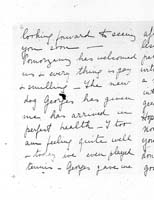 looking forward to seeing
you soon —
Tomorrow has welcomed
us & every thing is gay
& smiling — The new
dog Georges has given
me has arrived in
perfect health — I too
am feeling quite well
& today we even played
tennis — Georges gave me